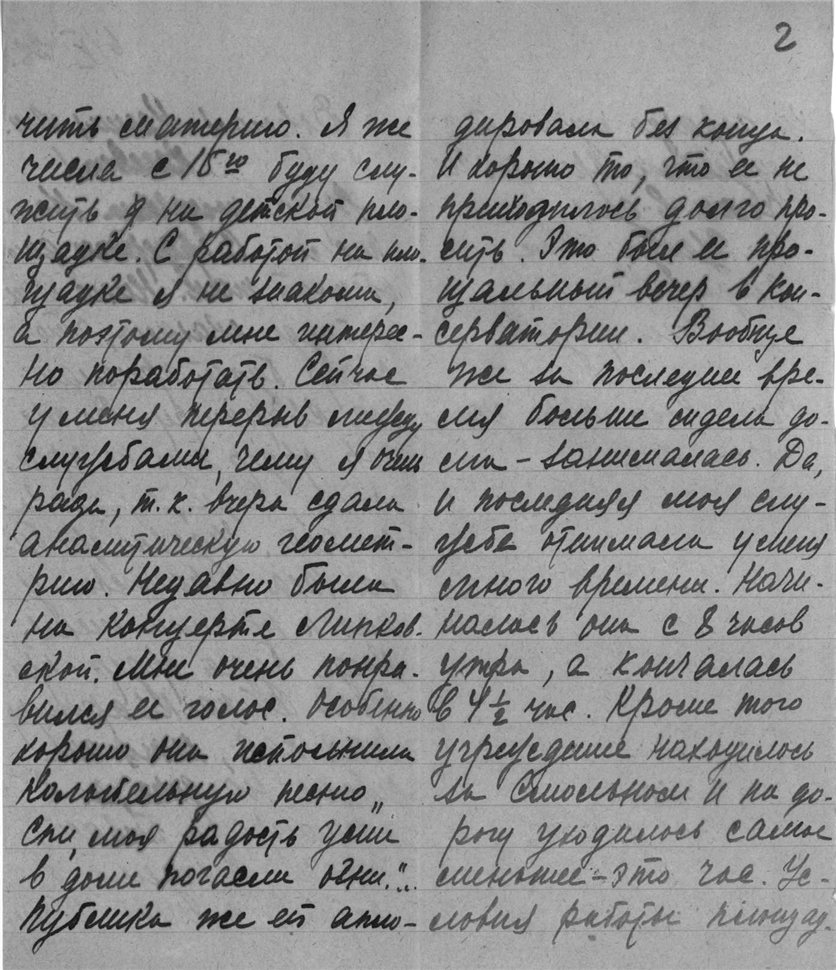 2
чить материю. Я же
числа с 15го буду слу-
жить я на детской пло-
щадке. С работой на пло-
щадке я не знакома,
а поэтому мне интерес-
но поработать. Сейчас
у меня перерыв между
службами, чему я очень
рада, т.к. вчера сдала
аналитическую геомет-
рию. Недавно была
на концерте Липков-
ской. Мне очень понра-
вился ее голос. Особенно
хорошо она исполнила
колыбельную песню „
Спи, моя радость усни
в доме погасли огни."..
Публика же ей апло-
дировала без конца.
И хорошо то, что ее не
приходилось долго про-
сить. Это был ее про-
щальный вечер в кон-
серватории. Вообще
же за последнее вре-
мя больше сидела до-
ма – занималась. Да,
и последняя моя слу-
жба отнимала у меня
много времени. Начи-
налась она с 8 часов
утра, а кончалась
в 4½ час. Кроме того
учреждение находилось
за Смольным и на до-
рогу уходилось самое
меньшее – это час. Ус-
ловия работы площад-